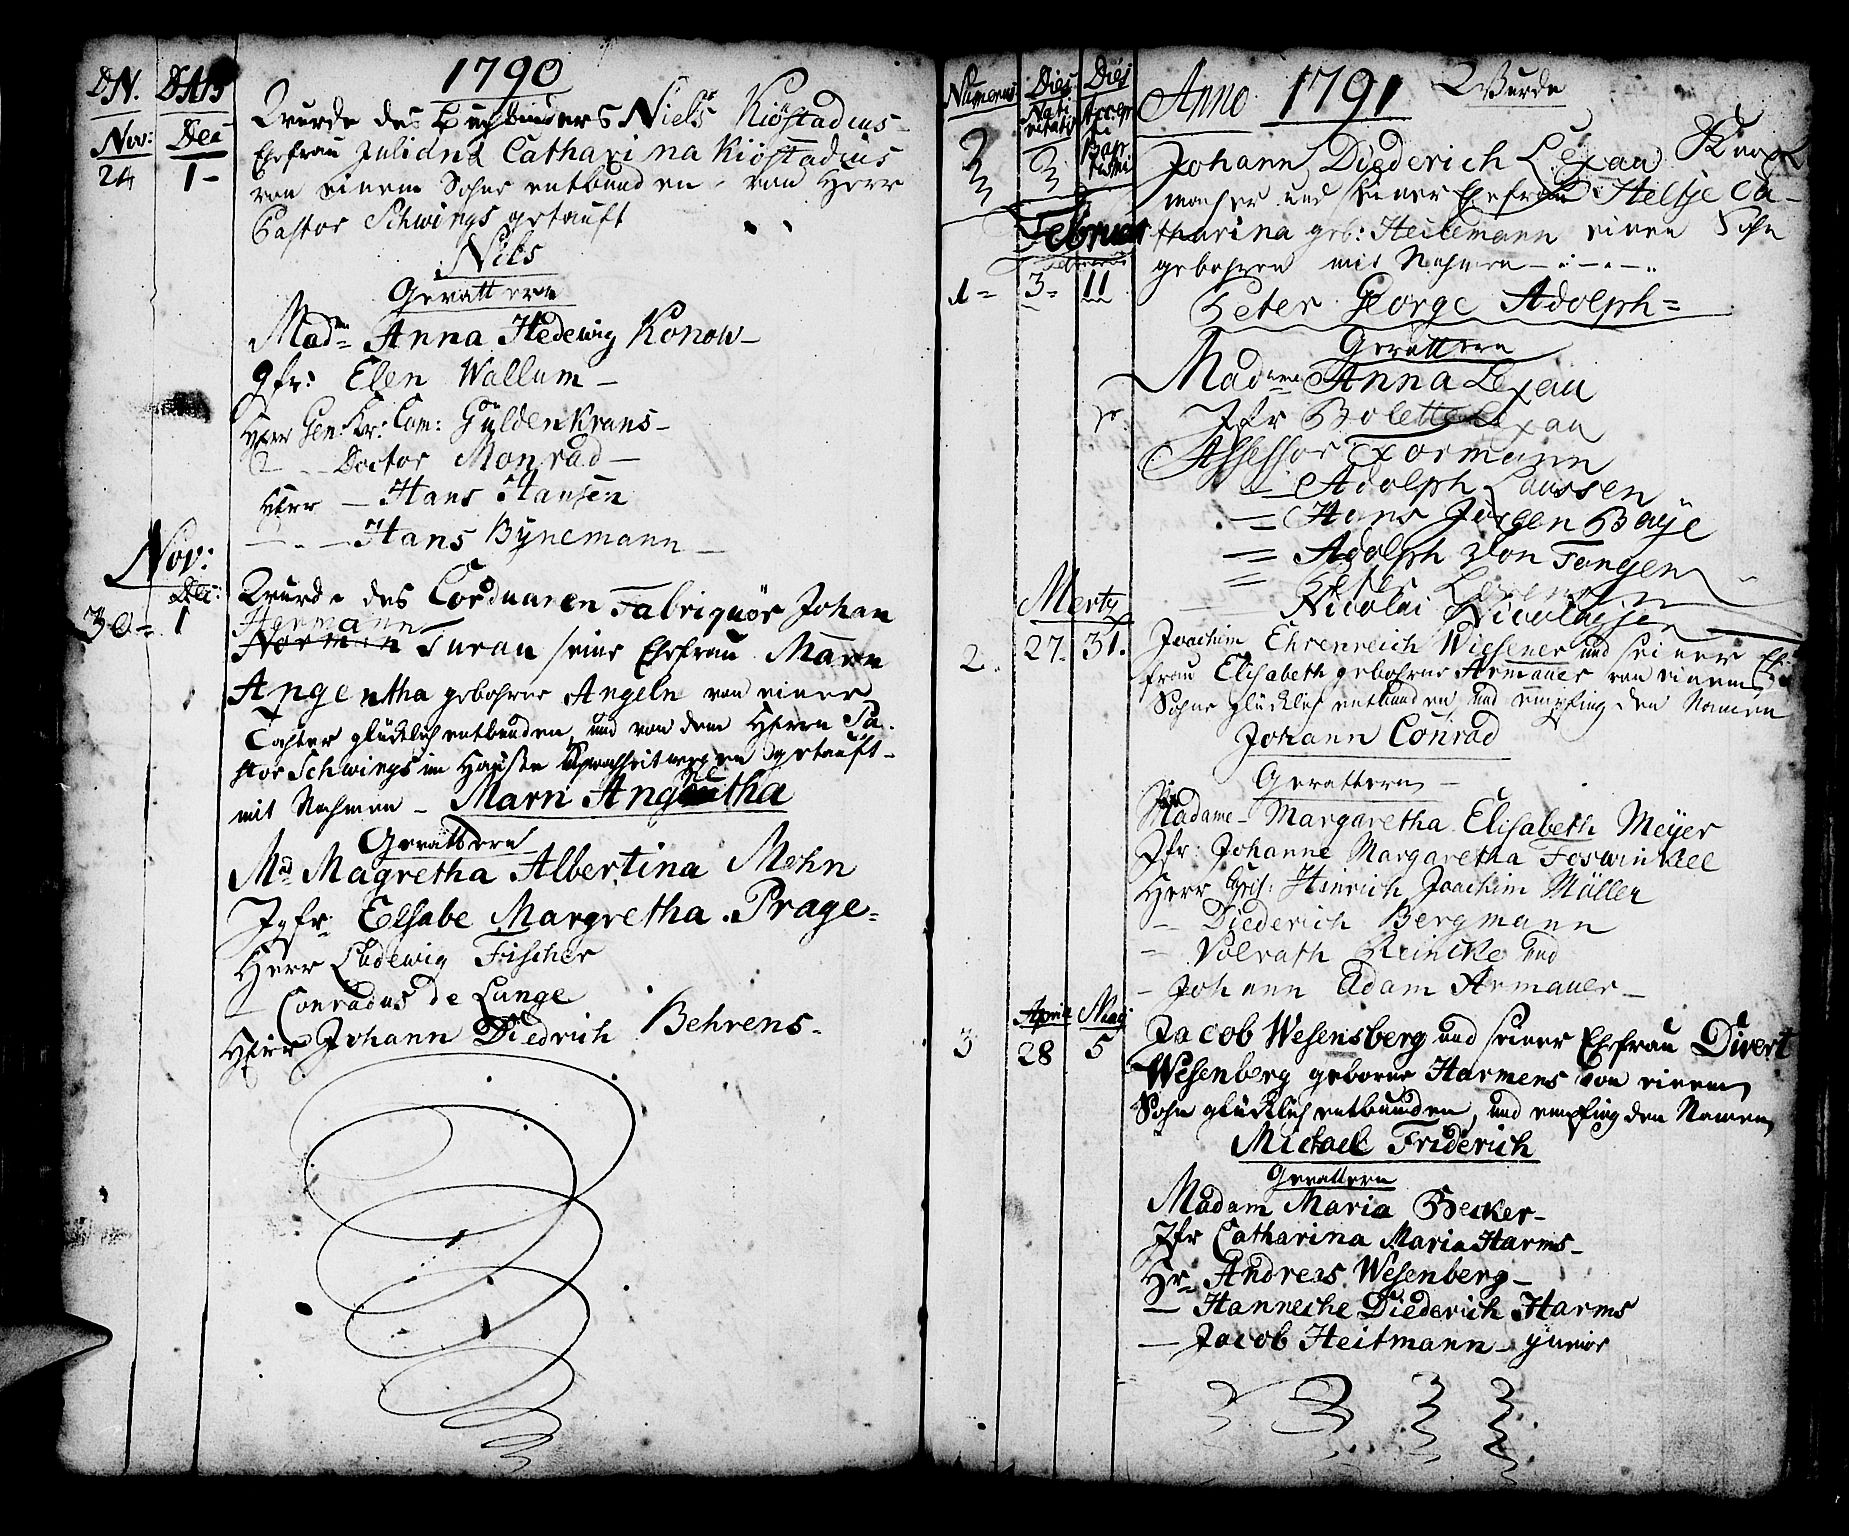 DN. DAB
1790
Nov: Dec
24 1-
Wurde des Buchbinders Niels Kiöstadius
Ehefrau Juliana Catharina Kiöstadius
von einem Sohne entbunden, von Herr
Pastor Schwings getauft
Nils
Gevattern
Madm Anna Hedewig Konow-
Jfr: Elen Wallum-
Herr Gen: Kr: Com: Güldenkrans-
Doctor Monrad-
Herr - Hans Hansen
- Hans Bÿnemann-
Nov:
Dec:
30- 1
Wurde des Corduanen Fabriquör Johan
Harmann
Turau seine Ehefrau Maren
Angentha gebohrne Angeln von einer
Tochter glücklich entbunden, und von dem Herrn Pa-
stor Schwings im Hause Schwachheit wegen getauft-
mit Nahmen - Marn Angentha
Gevattern
Mad Magretha Albertina Mohn
Jgfr: Elsabe Margretha Prage-
Herr Ludewig Fischer
- Conradus de Lange
Herr Johann Diedrich Behrens-
Numerus Dies Nativitatis Dies Accepti Baptismi
Anno 1791 Wurde
Johann Diederich Lexau Knopf
macher und seiner Ehefrau Heltje Ca-
Februar
tharina geb: Heitemann einen Sohn
gebohren mit Nahmen
1- 3- 11
Peter George Adolph-
Gevattern
Madame Anna Lexau
Jfr Bolette Lexau
Assessor Formann
= Adolph Laussen
= Hans Jürgen Baÿe
= Adolph von Tangen
Nicolai Nicolaysen
Merty
2. 27. 31.
Joachim Ehrenreich Wiesener und seiner Ehe
frau Elisabeth gebohrne Armauer von einem
Sohne glücklich entbunden und empfing den Namen
Johann Conrad
Gevattern-
Madame- Margaretha Elisabeth Meÿer
Jfr: Johanne Margaretha Foswinckel
Herr Chris: Hinrich Joachim Müller
- Diederich Bergmann
- Volrath Reincke und
- Johann Adam Armauer-
April May
3 28 5
Jacob Wesensberg und seiner Ehefrau Divert
Wesenberg geborne Harmens von einem
Sohn glücklich entbunden, und empfing den Namen
Michael Friderich
Gevattern
Madam Maria Becker-
Jfr Catharina Maria Harms-
Hr Andreas Wesenberg-
- Hanneche Diederich Harms
- Jacob Heitmann- junior